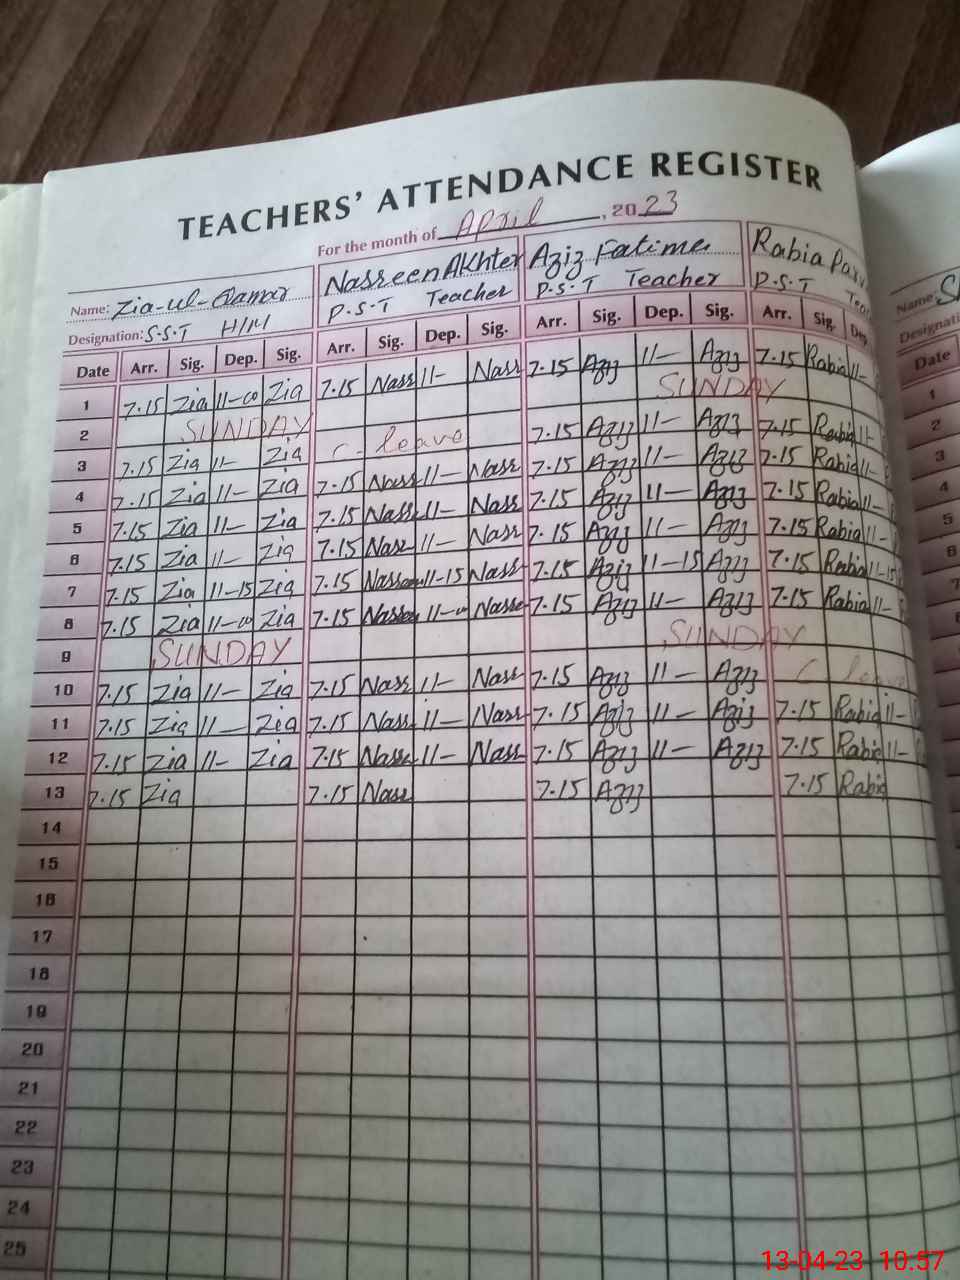 TEACHERS' ATTENDANCE REGISTER
For the month of April, 2023
Name: Zia-ul-Qamar Nasreen Akhter Aziz Fatima Rabia
Designation: S.S.T H/M P.S.T Teacher P.S.T Teacher P.S.T
Date Arr. Sig. Dep. Sig. Arr. Sig. Dep. Sig. Arr. Sig. Dep. Sig. Arr. Sig. Dep.
1 7.15 Zia 11-00 Zia 7.15 Nasr 11- Nasr 7.15 Aziz 11- Aziz 7.15 Rabia 11-
2 SUNDAY SUNDAY
3 7.15 Zia 11- Zia C- leave 7.15 Aziz 11- Aziz 7.15 Rabia 11-
4 7.15 Zia 11- Zia 7.15 Nasr 11- Nasr 7.15 Aziz 11- Aziz 7.15 Rabia 11-
5 7.15 Zia 11- Zia 7.15 Nasr 11- Nasr 7.15 Aziz 11- Aziz 7.15 Rabia 11-
6 7.15 Zia 11- Zia 7.15 Nasr 11- Nasr 7.15 Aziz 11- Aziz 7.15 Rabia 11-
7 7.15 Zia 11-15 Zia 7.15 11-15 Nasr 7.15 Aziz 11-15 Aziz 7.15 Rabia 11-15
8 7.15 Zia 11-00 Zia 7.15 11-00 7.15 Aziz 11- Aziz 7.15 Rabia 11-
9 SUNDAY SUNDAY
10 7.15 Zia 11- Zia 7.15 Nasr 11- Nasr 7.15 Aziz 11- Aziz C leave
11 7.15 Zia 11- Zia 7.15 Nasr 11- Nasr 7.15 Aziz 11- Aziz 7.15 Rabia 11-
12 7.15 Zia 11- Zia 7.15 Nasr 11- Nasr 7.15 Aziz 11- Aziz 7.15 Rabia 11-
13 7.15 Zia 7.15 Nasr 7.15 Aziz 7.15 Rabia
14
15
16
17
18
19
20
21
22
23
24
25
Name:
Date
1
2
3
4
5
6
13-04-23 10:57